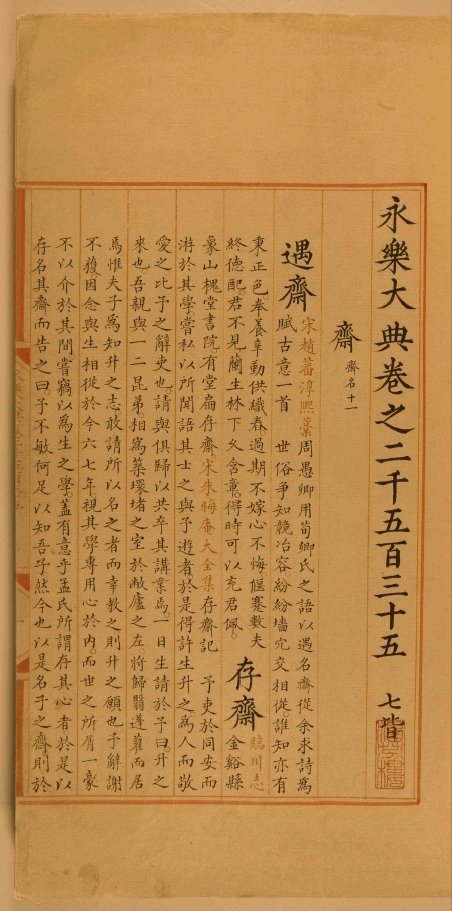 永樂大典卷之二千五百三十五 七皆
齋 齋名十一
遇齋 宋趙蕃淳熙藁 周愚卿用荀卿氏之語以遇名齋從余求詩為
賦古意一首 世俗爭知競冶容紛紛墻穴交相從誰知亦有
秉正色奉養辛勤供織舂過期不嫁心不悔偃蹇數夫
終德配君不見蘭生林下乆含薫得時可以充君佩
存齋 臨川志
金谿縣
象山槐堂書院有堂扁存齋宋朱晦庵大全集存齋記 予吏於同安而
游於其學嘗私以所聞語其士之與予遊者於是得許生升之為人而敬
愛之比予之辭吏也請與俱歸以共卒其講業焉一日生請於予曰升之
來也吾親與一二昆弟相為築環堵之室於敝廬之左將歸翳蓬藋而居
焉惟夫子為知升之志敢請所以名之者而幸教之則升之願也予辭謝
不獲因念與生相從於今六七年視其學專用心於内而世之所屑一豪
不以介於其間嘗竊以為生之學蓋有意乎孟氏所謂存其心者於是以
存名其齋而告之曰予不敏何足以知吾子然今也以是名子之齋則於